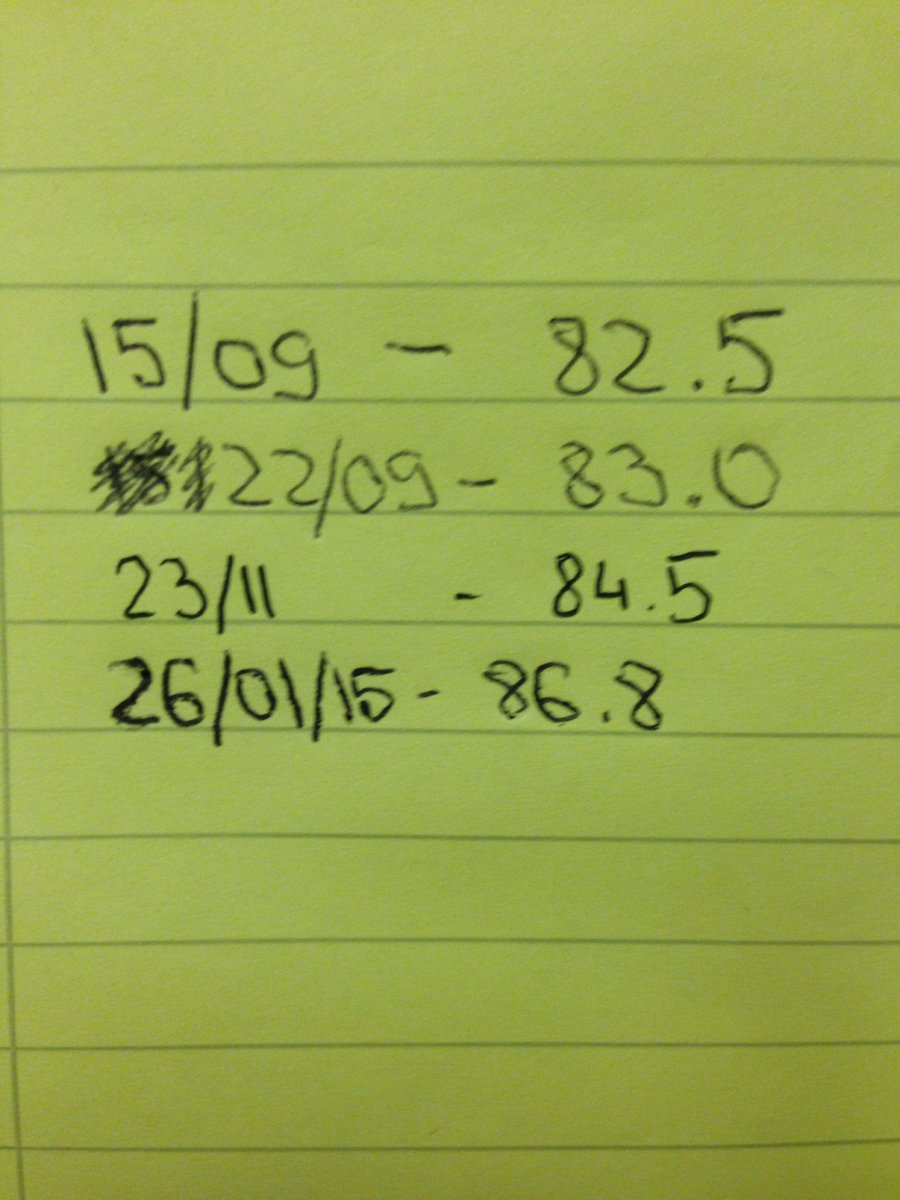 15/09 - 82.5
22/09 - 83.0
23/11 - 84.5
26/01/15 - 86.8